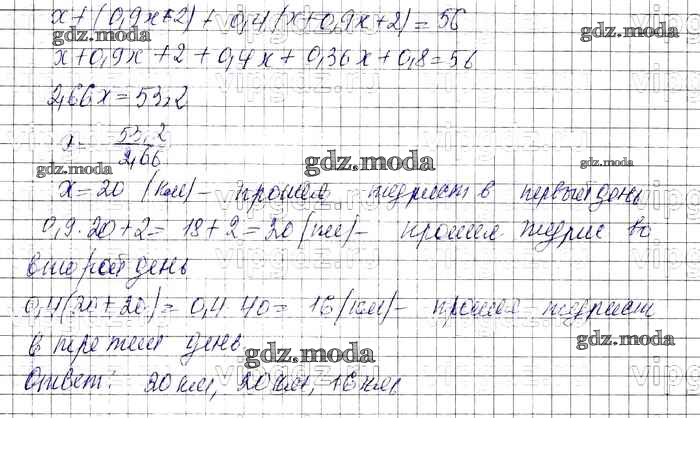 x+(0,9x+2)+0,4(x+0,9x+2)=56
x+0,9x+2+0,4x+0,36x+0,8=56
2,66x=53,2
x= 53,2/2,66
x=20 (км)- прошел турист в первый день
0,9·20+2= 18+2=20 (км)- прошел турист во
второй день
0,4(20+20)= 0,4·40= 16(км)- прошел турист
в третий день.
Ответ: 20 км, 20 км, 16 км.
gdz.moda
gdz.moda
gdz.moda
gdz.moda
gdz.moda
gdz.moda
gdz.moda
gdz.moda